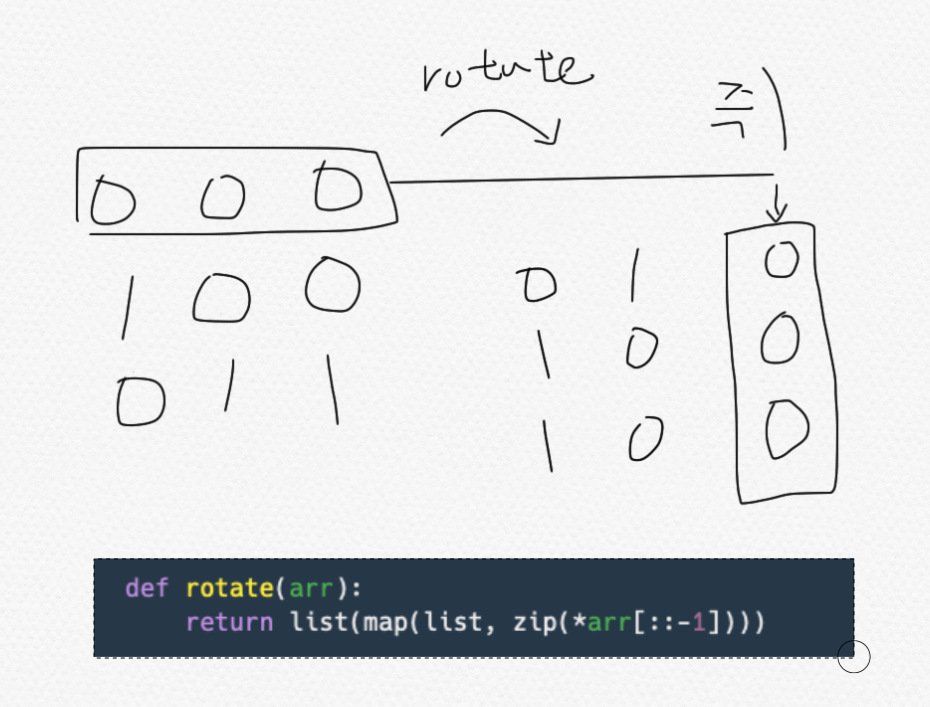 rotate
0 0 0
1 0 0
0 1 1
0 1 0
1 0 0
1 0 0
def rotate(arr):
return list(map(list, zip(*arr[::-1])))